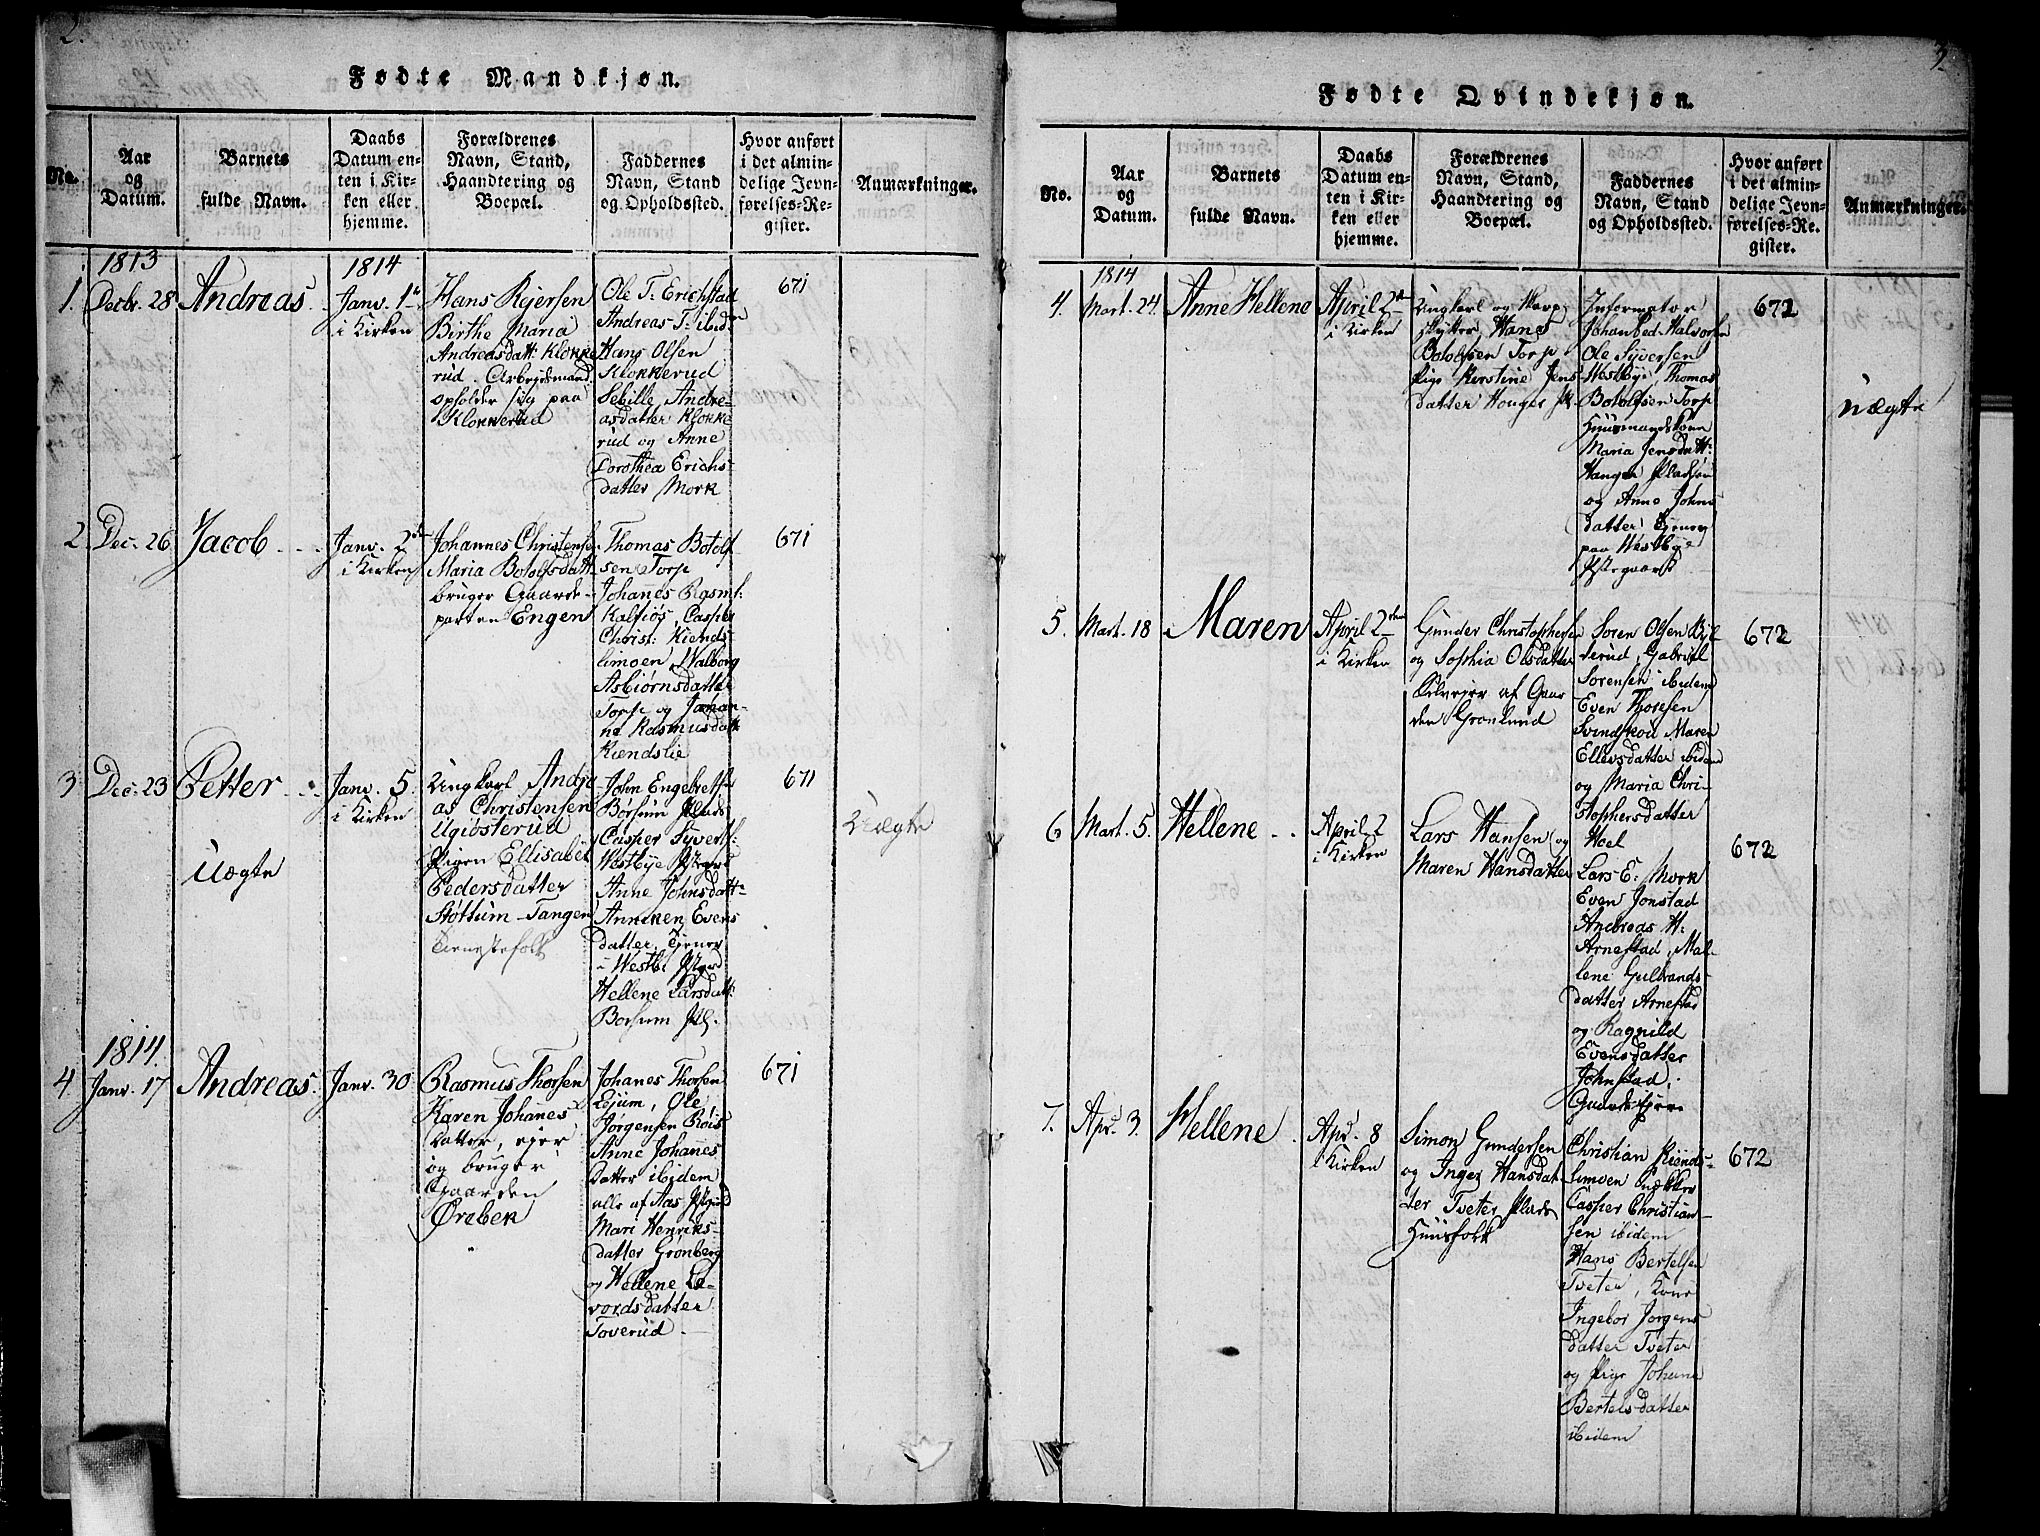 2.
Fødte Mandkjøn.
No.
Aar
og
Datum.
Barnets
fulde Navn.
Daabs
Datum en-
ten i Kir-
ken eller
hjemme.
Forældrenes
Navn, Stand,
Haandtering og
Boepæl.
Faddernes
Navn, Stand
og Opholdssted.
Hvor anført
i det almin-
delige Jevn-
førelses-Re-
gister.
Anmærkninger.
1813
1.
Decbr. 28
Andreas
1814
Janv. 1
i Kirken
Hans
Birthe Maria
Andreasdatt: Klokke
rud. Arbejdsmand
opholder sig paa
Klokkerud
Ole T. Erichstad
Andreas T: ibid:
Hans Olsen
Klokkerud
Sebille Andre-
asdatter Klokke
rud og Anne
Dorothea Erichs-
datter Mork
671
2.
Dec. 26
Jacob
Janv. 2
i Kirken
Johannes Christensen
Maria Botolfsdatt
bruger Gaarde-
parten Engen
Thomas Botolf
sen Torp
Johanes Rasm:
Kalfiøs, Casper
Christ: Kiends-
limoen, Walborg
Asbiørnsdatter
Torp og Johan-
ne Rasmusdatt
Kiendslie
671
3
Dec. 23
Petter
Uægte
Janv. 5.
i Kirken
Ungkarl Andre
as Christensen
Ugiøsterud
Pigen Ellisabet
Pedersdatter
Støttum-Tangen
Tienestefolk
John Engebretsn
Borsum Plads
Casper Syverts:
Westbye
Anne Johnsdatt:
Anniken Evens
datter, Tiener
i Westbi
Hellene Larsdatt:
Borsum Pl.
671
Uægte
1814.
4.
Janv. 17
Andreas.
Janv. 30
Rasmus Thorsen
Karen Johanes
datter, ejer
og bruger
Gaarden
Ørebek
Johanes Thorsen
Lejum, Ole
Jørgensen Røis
Anne Johanes
datter ibidem
alle af Aas
Mari Henriks-
datter Grønberg
og Hellene Le-
vordsdatter
Toverud
671
3.
Fødte Qvindekjøn.
No.
Aar
og
Datum.
Barnets
fulde Navn.
Daabs
Datum en-
ten i Kir-
ken eller
hjemme.
Forældrenes
Navn, Stand,
Haandtering og
Boepæl.
Faddernes
Navn, Stand
og Opholdssted.
Hvor anført
i det almin-
delige Jevn-
førelses-Re-
gister.
Anmærkninger.
1814
4.
Mart. 24
Anne Hellene
April 2
i Kirken
Ungkarl og Skarp
skytter Hans
Botolfsen Torp
Pige Kerstine Jens
datter Houger
Informator
Halvorsen
Ole Syversen
Westbye, Thomas
Botolfsen Torp
Huusmandskone
Maria Jensdatt:
Pladsen
og Anne Johns
datter Tjener
paa Westbye
672
Uægte
5.
Mart. 18
Maren
April 2
i Kirken
Gunder Christophersen
og Sophia Olsdatter
Selvejer af Gaar
den Gronlund
Soren Olsen
Gabriel
Sorensen ibidem
Even Thoresen
Svindskou Maren
Ellevsdatter ibidem
og Maria Chri-
stophersdatter
Hoel
672
6
Mart. 5.
Hellene
April 2
i Kirken
Lars Hansen og
Maren Hansdatter
Lars E. Mork
Even Jonstad
Andreas H:
Arnestad, Mal-
lene Gulbrands-
datter Arnestad
og Ragnild
Evensdatter
Johnstad.
672
7.
Apr. 3.
Hellene
Apr. 8
i Kirken
Simon Gundersen
og Inger Hansdat-
ter Tveter Plads
Huusfolk
Christian Kiends-
limoen
Casper Christian-
sen ibidem
Hans Bertelsen
Tveter, Kone
Ingebor Jorgens
datter Tveter
og Pige Johane
Bertelsdatter
ibidem
672